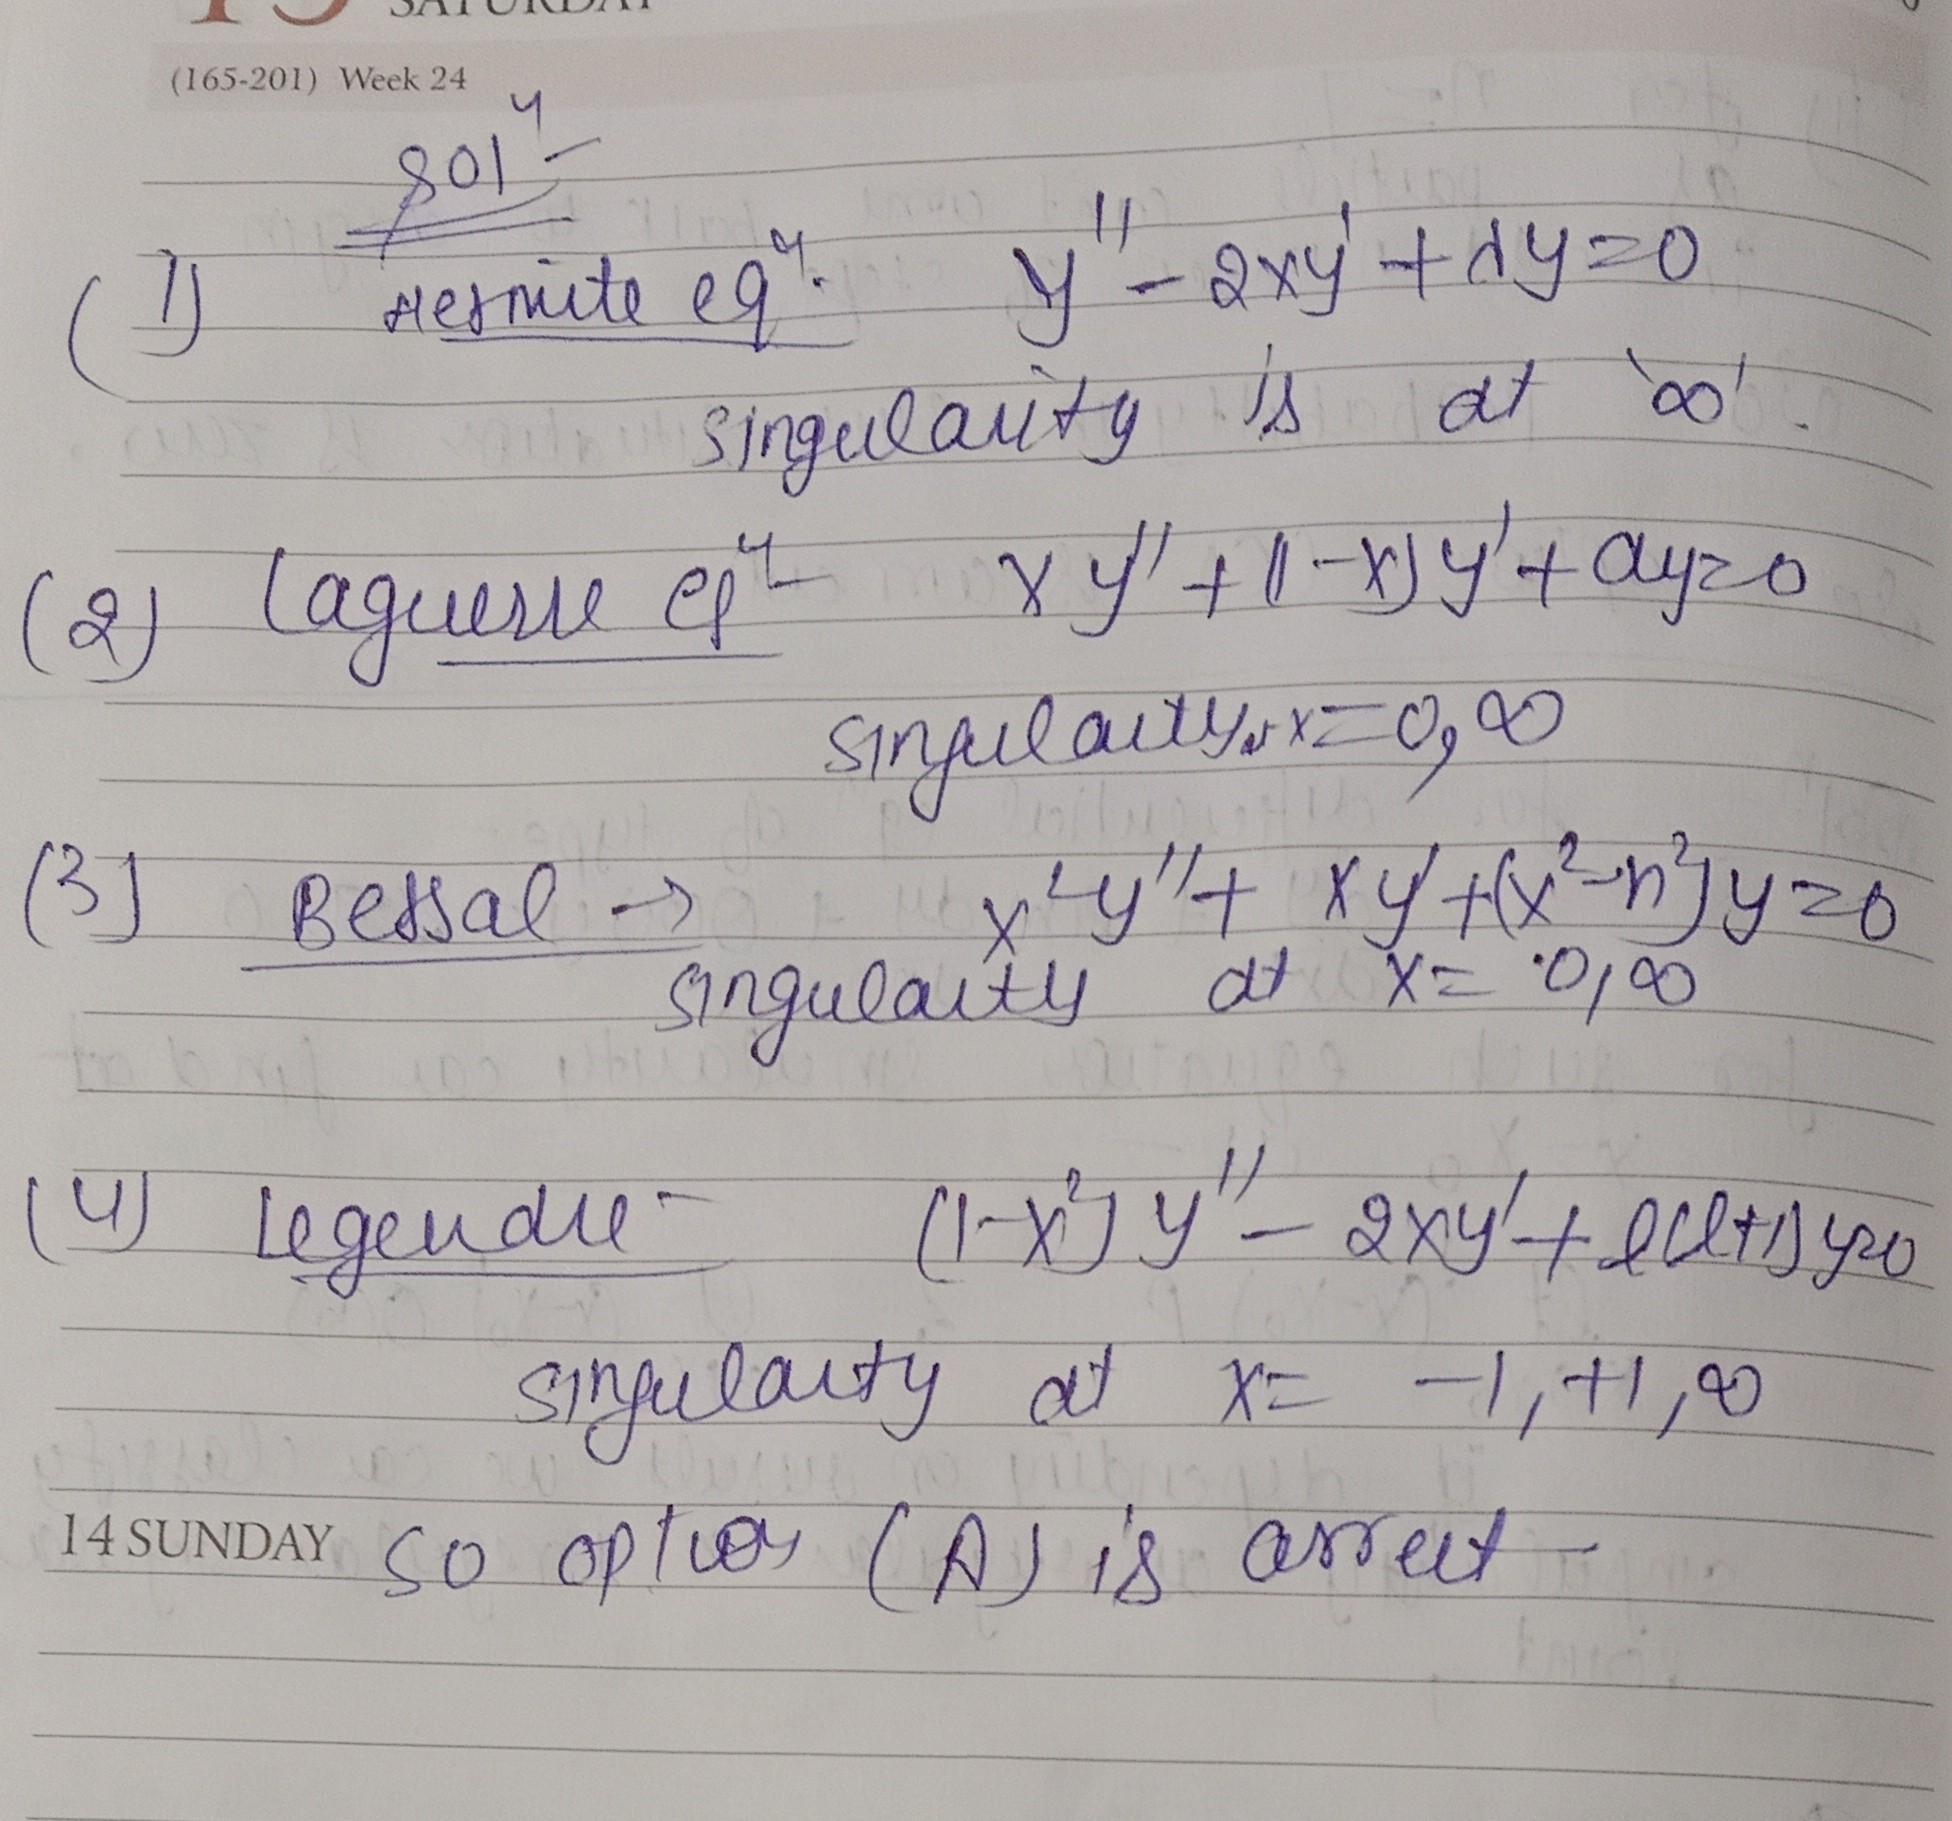 SATURDAY
(165-201) Week 24
Solⁿ -
(1) Hermite eqⁿ. y'' - 2xy' + λy = 0
singularity is at '∞'.
(2) Laguerre eqⁿ - xy'' + (1-x)y' + ay = 0
singularity x = 0, ∞
(3) Bessal → x²y'' + xy' + (x²-n²)y = 0
singularity at x = 0, ∞
(4) Legendre - (1-x²)y'' - 2xy' + l(l+1)y=0
singularity at x = -1, +1, ∞
14 SUNDAY so option (A) is correct -